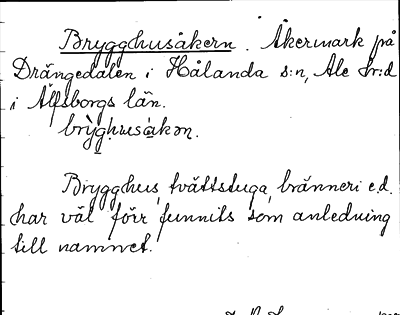 Brygghusåkern. Åkermark på
Drängedalen i Hålanda s:n, Ale hr:d
i Älfsborgs län.
bryghusåkon.
Brygghus, tvättstuga, bränneri e.d.
har väl förr funnits som anledning
till namnet.